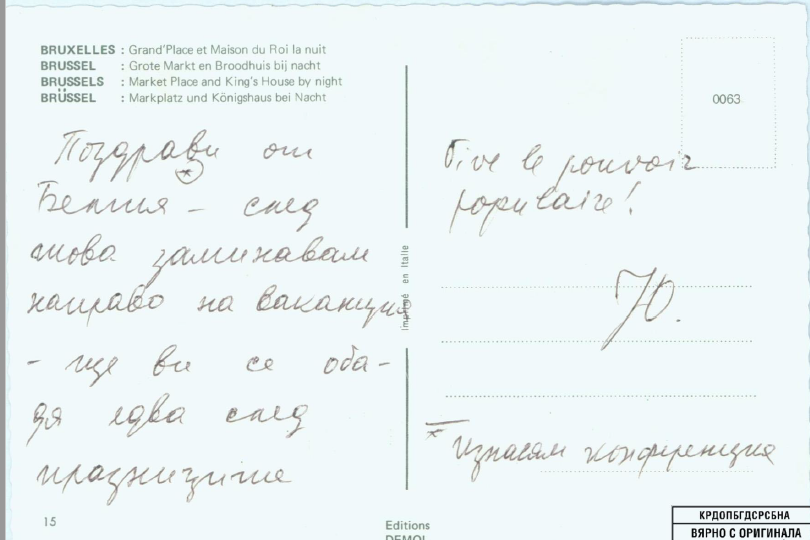 BRUXELLES : Grand'Place et Maison du Roi la nuit
BRUSSEL : Grote Markt en Broodhuis bij nacht
BRUSSELS : Market Place and King's House by night
BRÜSSEL : Markplatz und Königshaus bei Nacht
Поздрави от
*
Белгия – след
това заминавам
направо на ваканция
– ще ви се оба-
дя едва след
празниците
15
imprimé en Italie
Editions
DEMOL
0063
Vive le pouvoir
populaire!
Ю.
* Изнасям конференция
КРДОПБГДСРСБНА
ВЯРНО С ОРИГИНАЛА